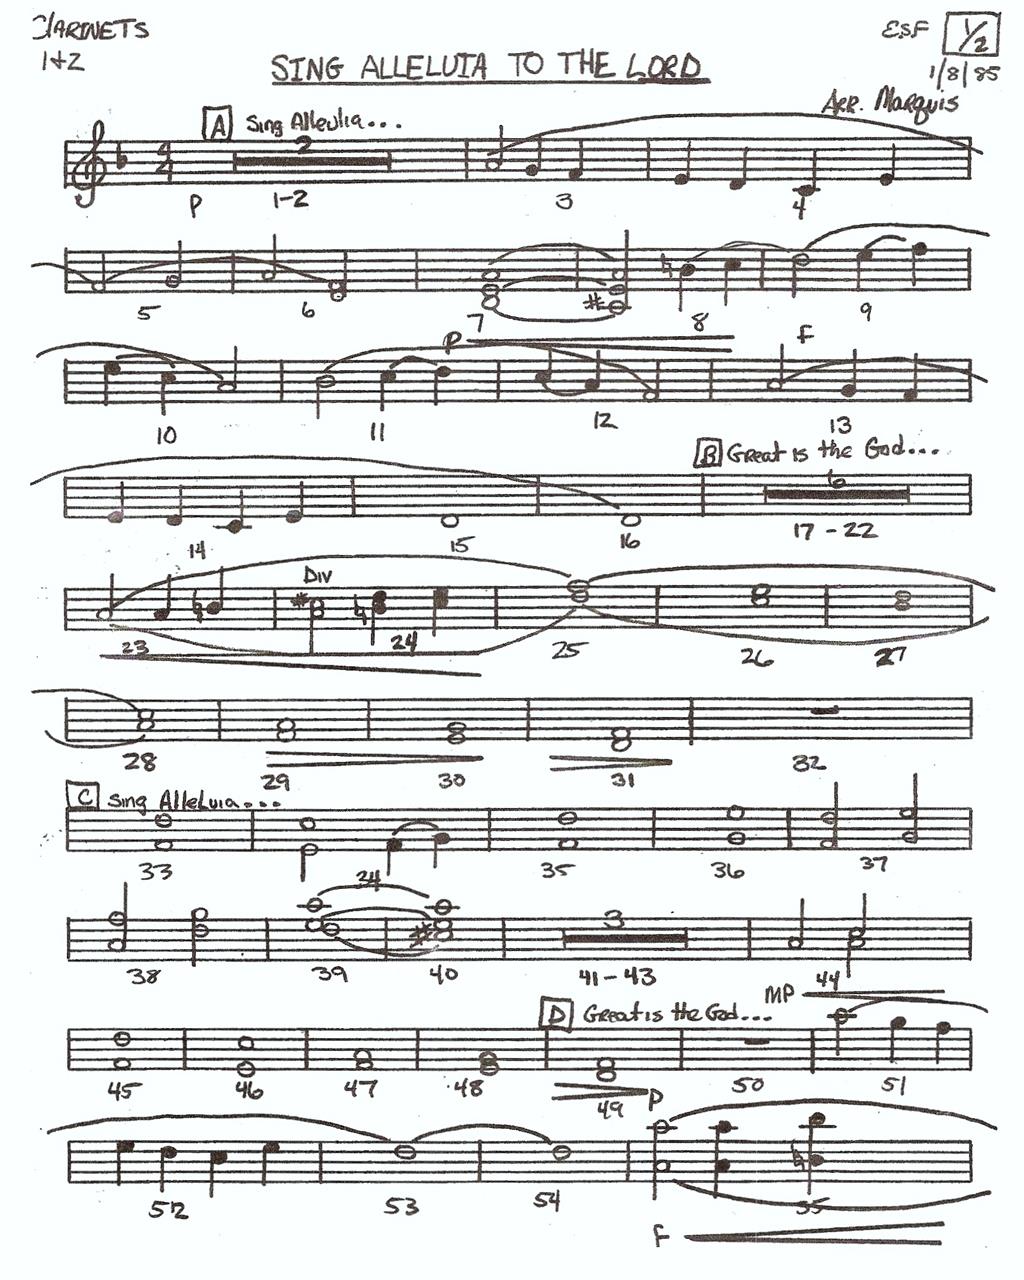 CLARINETS
1+2
ESF 1/2
1/8/85
SING ALLELUIA TO THE LORD
ARR. Marquis
A Sing Alleluia...
4
4
2
P 1-2 3 4
5 6 7 8 9
#
P F
10 11 12 13
B Great is the God...
6
14 15 16 17-22
Div
23 24 25 26 27
28 29 30 31 32
C Sing Alleluia...
33 34 35 36 37
3
38 39 40 41-43 44
MP
D Great is the God...
45 46 47 48 49 50 51
P
52 53 54 55
F